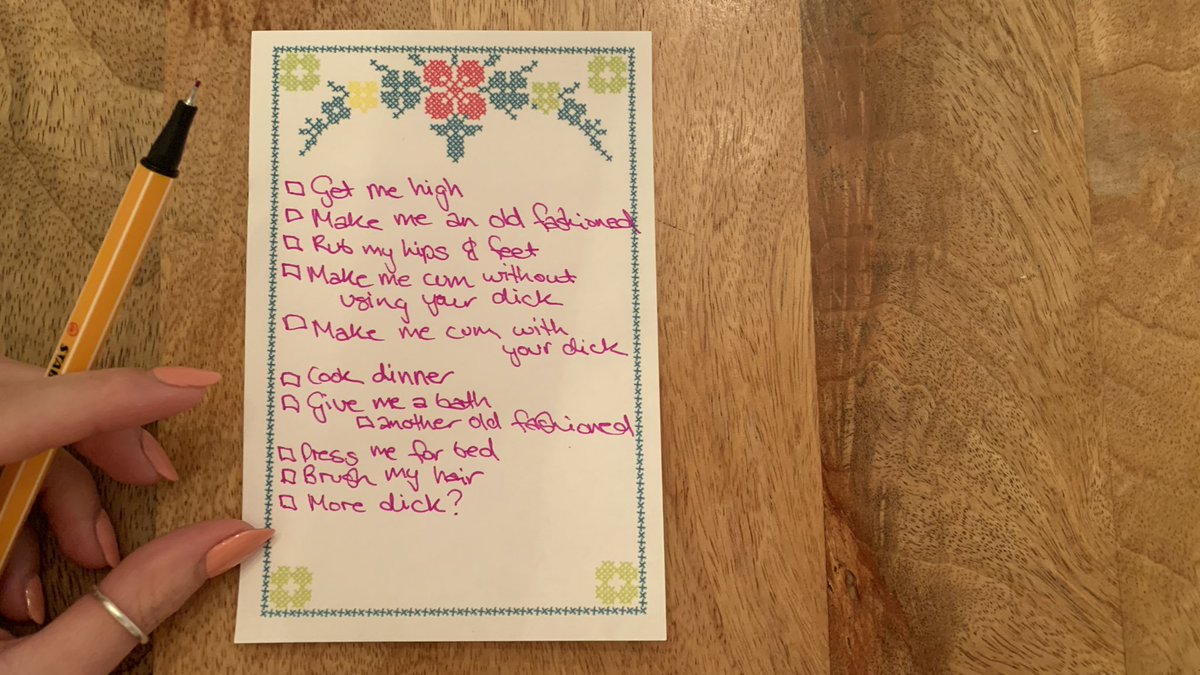 Get me high
Make me an old fashioned
Rub my hips & feet
Make me cum without
using your dick
Make me cum with
your dick
Cook dinner
Give me a bath
another old fashioned
Dress me for bed
Brush my hair
More dick?